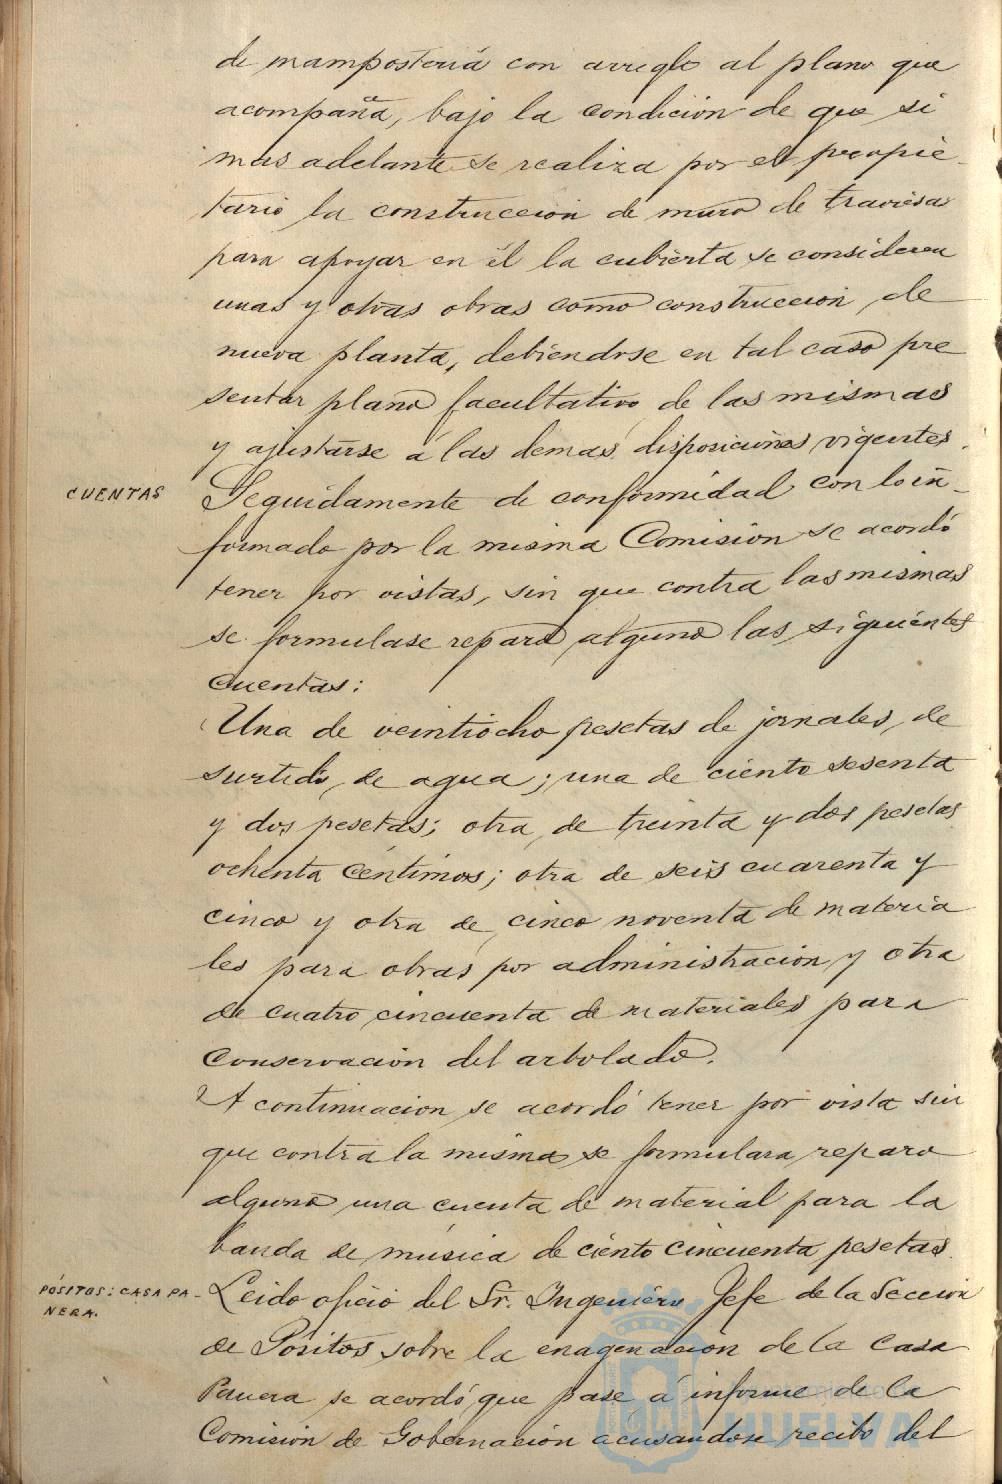 de mamposteria con arreglo al plano que
acompaña, bajo la condicion de que si
mas adelante se realiza por el propie-
tario la construccion de muro de traviesas
para apoyar en él la cubierta se consideren
unas y otras obras como construccion de
nueva planta, debiendose en tal caso pre
sentar plano facultativo de las mismas
y ajustarse á las demas disposiciones vigentes.
CUENTAS
Seguidamente de conformidad con lo in-
formado por la misma Comision se acordó
tener por vistas, sin que contra las mismas
se formulase reparo alguno las siguientes
cuentas:
Una de veintiocho pesetas de jornales, de
surtido de agua; una de ciento sesenta
y dos pesetas; otra de treinta y dos pesetas
ochenta centimos; otra de seis cuarenta y
cinco y otra de cinco noventa de materia
les para obras por administracion y otra
de cuatro cincuenta de materiales para
conservacion del arbolado.
A continuacion se acordó tener por vista sin
que contra la misma se formulara reparo
alguno una cuenta de material para la
banda de música de ciento cincuenta pesetas.
PÓSITOS: CASA PA-
NERA.
Leido oficio del Sr. Ingeniero Jefe de la Seccion
de Positos sobre la enagenacion de la Casa
Panera se acordó que pase á informe de la
Comision de Gobernacion acusandose recibo del
Ayuntamiento de
HUELVA